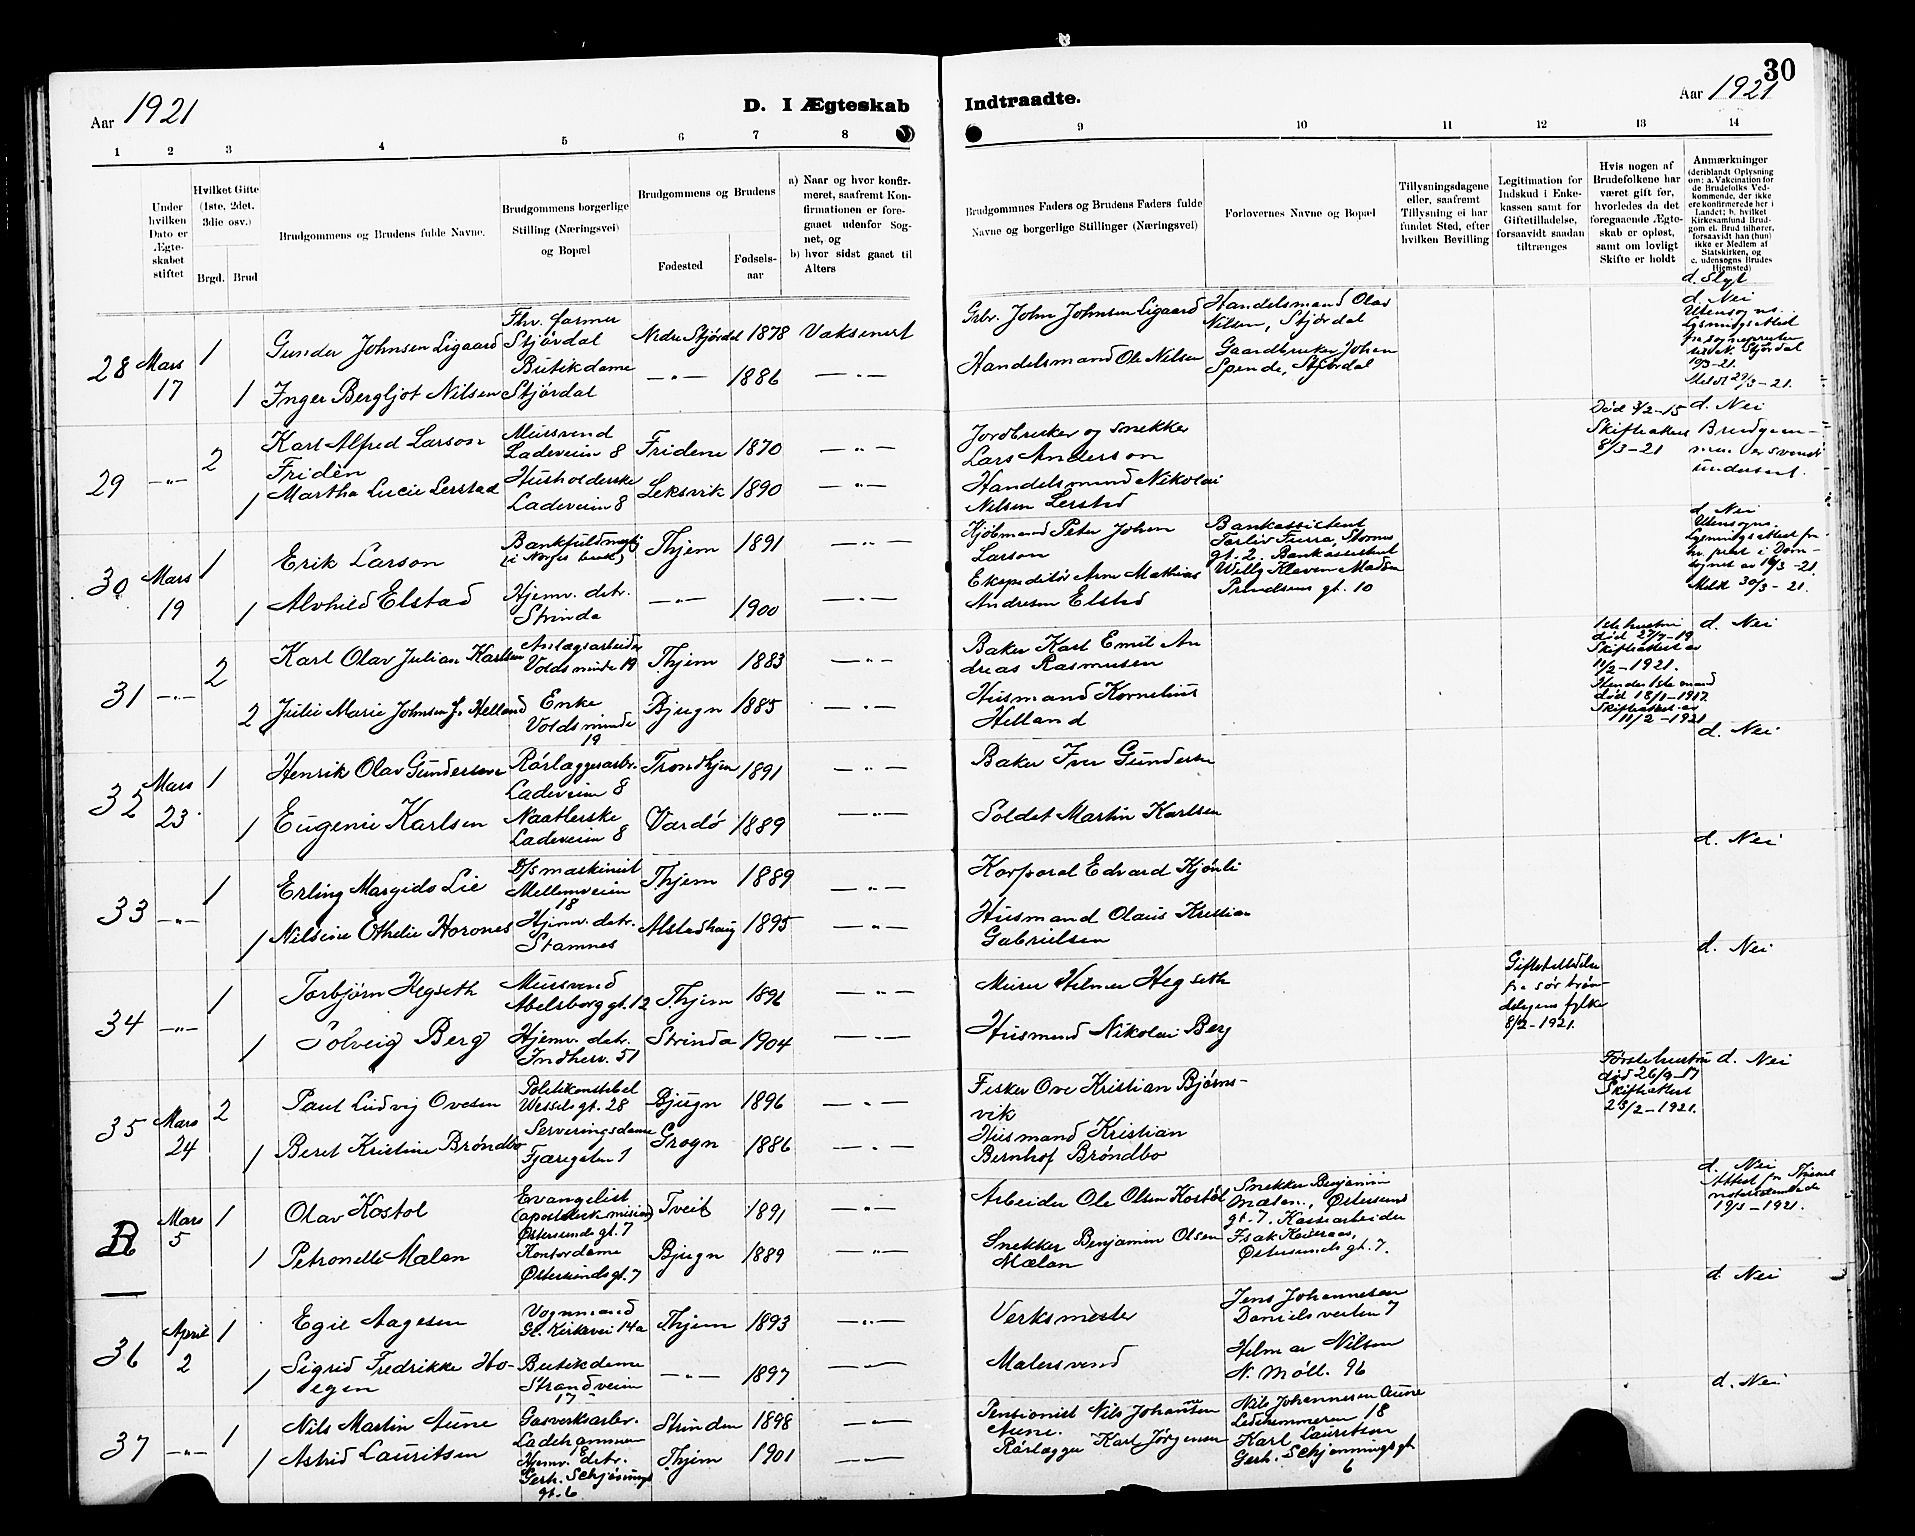 Aar 1921
D. I Ægteskab
Indtraadte.
30
Aar 1921
1 2 3 4 5 6 7 8
9 10 11 12 13 14
Under
hvilken
Dato er
Ægte-
skabet
stiftet
Hvilket Gifte
(1ste, 2det,
3die osv.)
Brgd. Brud
Brudgommens og Brudens fulde Navne.
Brudgommens borgerlige
Stilling (Næringsvei)
og Bopæl
Brudgommens og Brudens
Fødested
Fødsels-
aar
a) Naar og hvor konfir-
meret, saafremt Kon-
firmationen er fore-
gaaet udenfor Sog-
net, og
b) hvor sidst gaaet til
Alters
Brudgommnes Faders og Brudens Faders fulde
Navne og borgerlige Stillinger (Næringsvei)
Forlovernes Navne og Bopæl
Tillysningsdagene
eller, saafremt
Tillysning ei har
fundet Sted, efter
hvilken Bevilling
Legitimation for
Indskud i Enke-
kassen samt for
Giftetilladelse,
forsaavidt saadan
tiltrænges
Hvis nogen af
Brudefolkene har
været gift før,
hvorledes da det
foregaaende Ægte-
skab er opløst,
samt om lovligt
Skifte er holdt
Anmærkninger
(deriblandt Oplysning
om: a. Vakcination for
de Brudefolks Ved-
kommende, der ikke
ere konfirmerede her i
Landet; b. hvilket
Kirkesamfund Brud-
gom el. Brud tilhører,
forsaavidt han (hun)
ikke er Medlem af
Statskirken, og
c. udensogns Brudes
Hjemsted)
28 Mars 17
1 Gunder Johnsen Ligaard
Fhv. farmer
Stjørdal
Nedre Stjørdal 1878 Vaksinert
Grbr. John Johnsen Ligaard
Handelsmand Olav
Nilsen, Stjördal
1 Inger Bergljot Nilsen
Butikdame
Stjördal
—"— 1886 —"—
Handelsmand Ole Nilsen
Gaardbruker Johan
Spende, Stjördal
d. Nei
Utensogns.
Lysningsattest
N. Stjördal
29 —"—
2 Karl Alfred Larson
Fridén
Mursvend
Ladeveien 8
Fridene 1870 —"—
Jordbruker og snekker
Lars Anderson
Død 3/2-15
Skifteattest
8/3-21
d. Nei
Brudgom-
men er svensk
undersaat.
1 Martha Lucie Lerstad
Husholderske
Ladeveien 8
Leksvik 1890 —"—
Handelsmand Nikolai
Nilsen Lerstad
30 Mars 19
1 Erik Larson
Bankfuldmegt.
(i Norges bank)
Thjem 1891 —"—
Kjöbmand Peter Johan
Larson
Bankassistent
Torleiv Furra,
gt. 2. Bankassistent
Willy Klaven Madsen
Prindsens gt. 10
1 Alvhild Elstad
Hjemv. datr.
Strinda
—"— 1900 —"—
Ekspeditör Arne Mathias
Andresen Elstad
d. Nei
Utensogns.
Lysningsattest fra
Meldt 30/3-21.
31 —"—
2 Karl Olav Julian Karlsen
Anlægsarbeider
Voldsminde 19
Thjem 1883 —"—
Baker Karl Emil An
dreas Rasmussen
1ste hustru
død 27/7-19
Skifteattest av
11/2-1921.
d. Nei
2 Julie Marie Johnsen f. Helland
Enke
Voldsminde
19
Bjugn 1885 —"—
Husmand Kornelius
Helland
Hendes 1ste mand
død 18/11-1917.
Skifteattest av
11/2-1921
32 Mars 23.
1 Henrik Olav Gundersen
Rörlæggerarbr.
Ladeveien 8
Trondhjem 1891 —"—
Baker Iver Gundersen
d. Nei
1 Eugenie Karlsen
Naatlerske
Ladeveien 8
Vardö 1889 —"—
Soldat Martin Karlsen
33 —"—
1 Erling Margido Lie
D/S maskinist
Mellemveien
18
Thjem 1889 —"—
Korporal Edvard Kjönli
d. Nei
1 Nilsine Othelie Horones
Hjemv. datr.
Stamnes
Alstadhaug 1895 —"—
Husmand Olaus Kristian
Gabrielsen
34 —"—
1 Torbjörn Hegseth
Mursvend
Abelsborg gt. 12
Thjem 1896 —"—
Murer Helmer Hegseth
Giftetilladelse
fra sør trön-
delagens fylke
8/2-1921.
d. Nei
1 Solveig Berg
Hjemv. datr.
Indherv. 51
Strinda 1904 —"—
Husmand Nikolai Berg
35 Mars 24
2 Paul Ludvig Ovesen
Politikonstabel
Wessels gt. 28
Bjugn 1896 —"—
Fisker Ove Kristian Bjørns-
vik
Förste hustru
död 26/9-17
Skifteattest
23/2-1921.
d. Nei
1 Beret Kristine Brøndbo
Serveringsdame
Fjæregaten 7
Grogn 1886 —"—
Husmand Kristian
Bernhof Bröndbo
R Mars 5
1 Olav Kostöl
Evangelist
(apostolisk mision)
Østersunds gt. 7
Tveit 1891 —"—
Arbeider Ole Olsen Kostöl
Snekker Benjamin
Mælan, Østersund
gt. 7. Kassearbeider
d. Nei
19/3-1921.
1 Petronelle Mælan
Kontordame
Østersunds gt. 7
Bjugn 1889 —"—
Snekker Benjamin Olsen
Mælan
Isak
Østersunds gt. 7.
36 April 2
1 Egil Aagesen
Vognmand
Gl. Kirkevei 14a
Thjem 1893 —"—
Verksmester
Jens Johannesen
Danielsveiten 7
d. Nei
1 Sigrid Fredrikke Ho-
egen
Butikdame
Strandveien
17
—"— 1897 —"—
Malersvend
Helmer Nilsen
N. Möll. 96
37 —"—
1 Nils Martin Aune
Gasverksarbr.
Ladehammer
18
Strinden 1898 —"—
Pensionist Nils Johansen
Aune.
Nils Johannesen Aune
Ladehammeren 18
d. Nei
1 Astrid Lauritsen
Hjemv. datr.
Gerh. Schjønings
gt. 6
Thjem 1901 —"—
Rörlægger Karl Jörgensen
Karl Lauritsen
Gerh. Schjønnings gt.
6